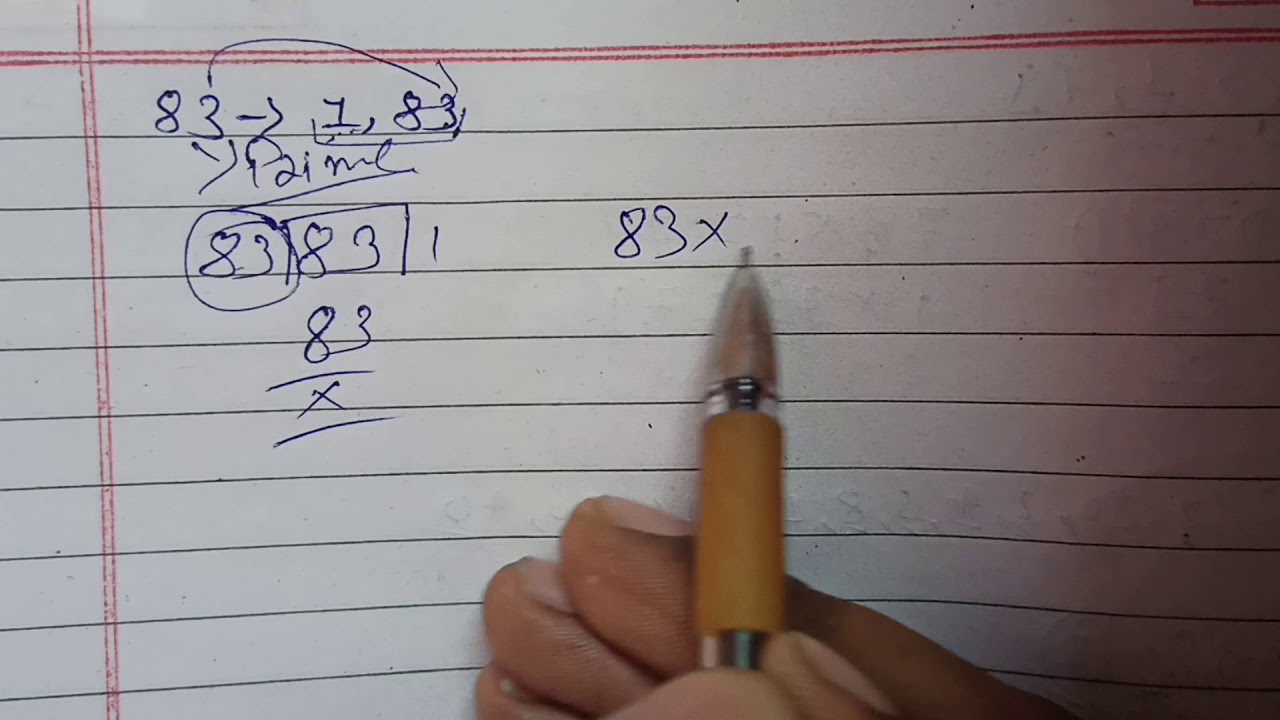 83 -> 1, 83
> Prime
83 | 83 | 1
83
x
83x